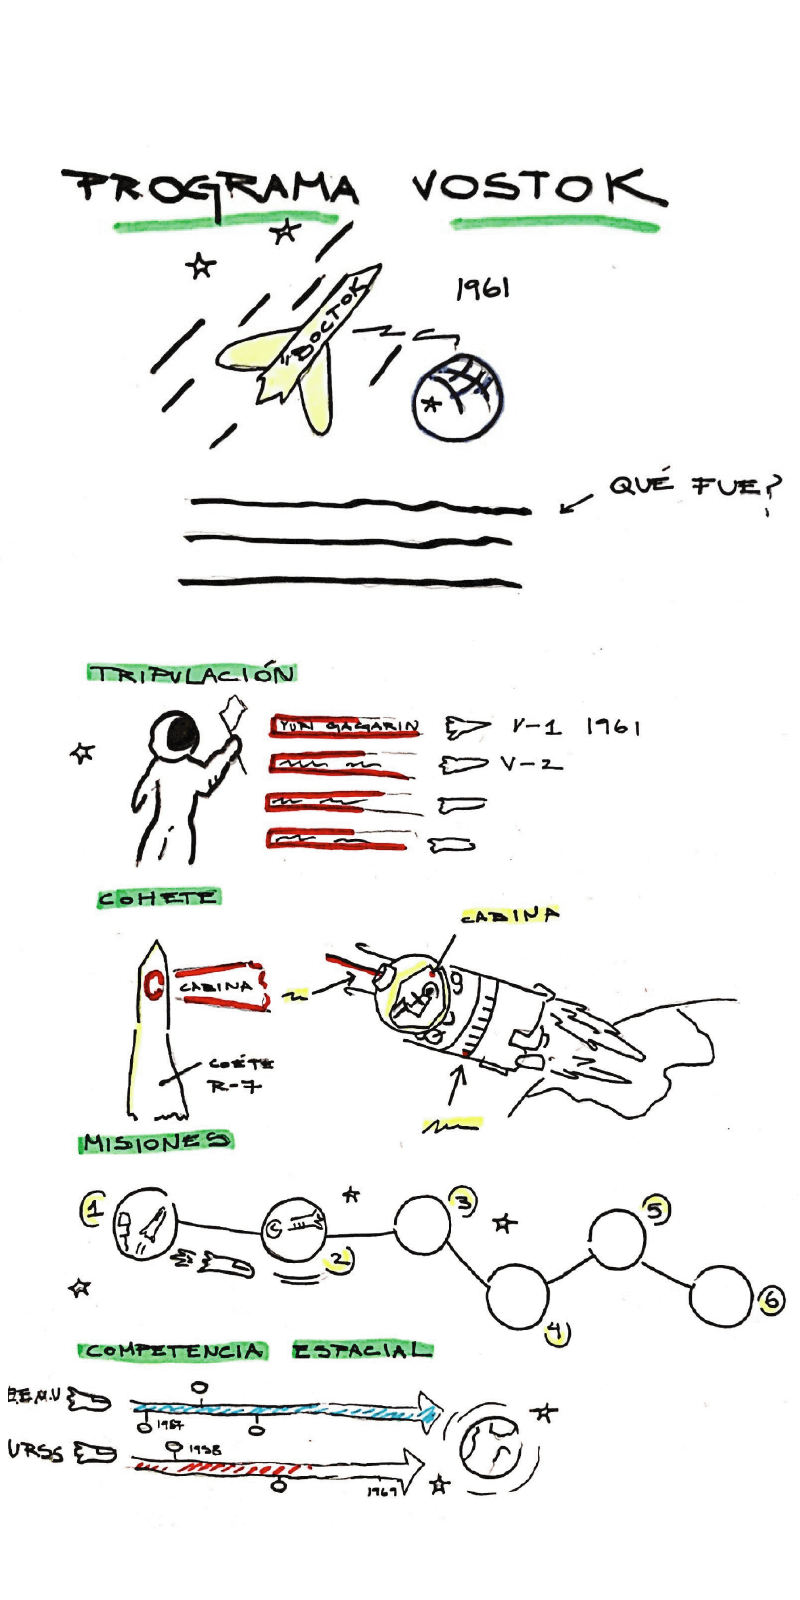 PROGRAMA VOSTOK
1961
"BOCTOK
QUÉ FUE?
TRIPULACIÓN
YURI GAGARIN V-1 1961
V-2
COHETE
CABINA
CABINA
COÉTE
R-7
MISIONES
1
2
3
4
5
6
COMPETENCIA ESPACIAL
E.E.U.U
1957
URSS
1958
1969